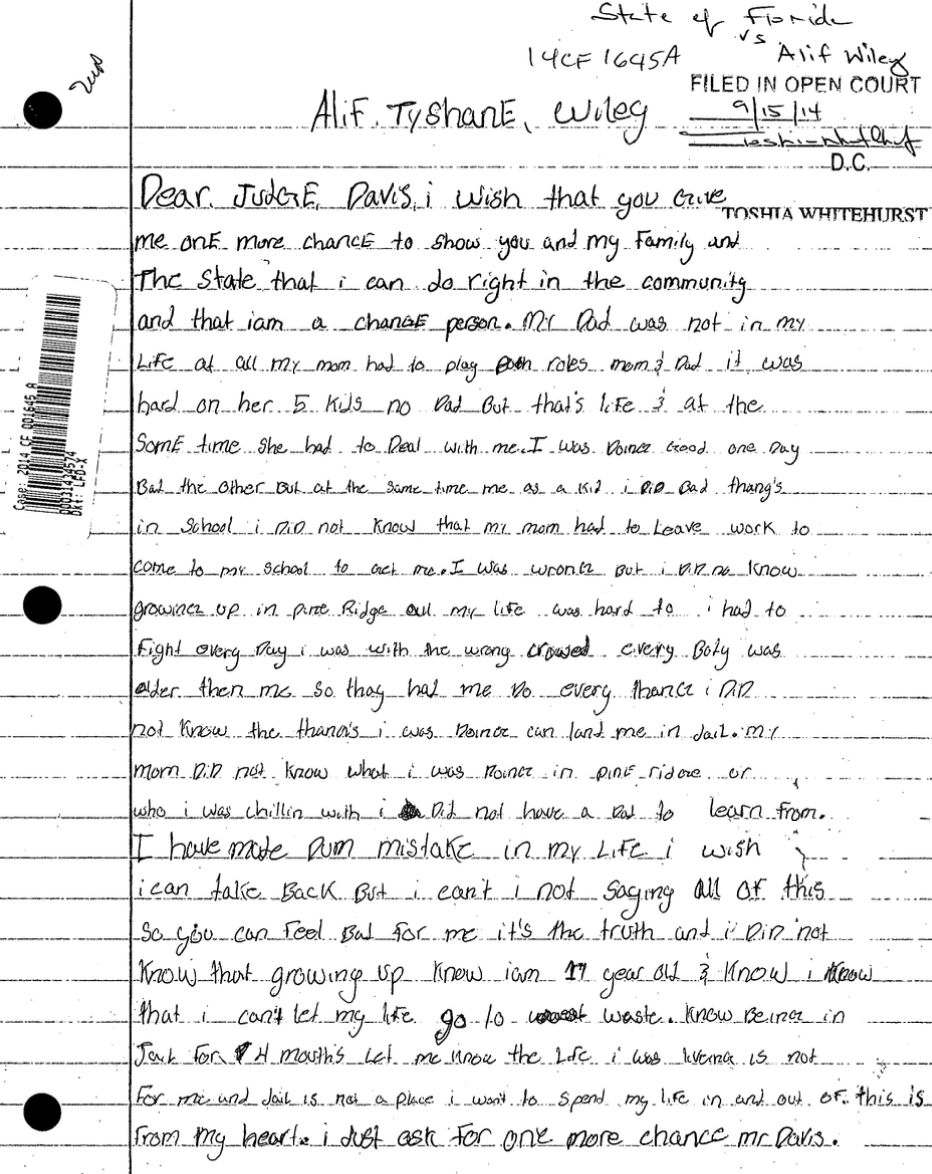 State of Floride
vs
14CF1645A
Alif Wiley
FILED IN OPEN COURT
9/15/14
D.C.
TOSHIA WHITEHURST
Alif. TyshanE, Wiley
Dear. JudGE, Davis, i wish that you Give
me onE more chancE to show you and my Family and
The State that i can do right in the community
and that iam a changE person. My Dad was not in my
Life at all my mom had to play Both roles mom & Dad it was
hard on her 5 kids no Dad But that's life & at the
SomE time she had to Deal with me. I was DoinG Good one Day
Bad the other But at the same time me as a Kid i DiD Bad thang's
in School i DiD not Know that my mom had to Leave work to
come to my school to Get me. I was wronG But i DiD no Know
growinG up in pine Ridge all my life was hard to i had to
Fight every Day i was with the wrong crowed every Boty was
older then me so thay had me Do every thanG i DiD
not Know the thanG's i was DoinG can land me in Jail. my
mom DiD not Know what i was DoinG in pinE ridGe or
who i was chillin with i Did not have a Dad to learn from.
I have made Dum mistakE in my LiFe i wish
i can take Back But i can't i not saying all oF this
So you can Feel Bad for me it's the truth and i DiD not
Know that growing up Know iam 17 year old & Know i Know
that i can't let my life go to waste. Know BeinG in
Jail For 4 mouth's Let me Know the Life i was livinG is not
For me and Jail is not a place i want to spend my life in and out oF. this is
From my heart. i Just ask For one more chance mr Davis.
Case: 2014 CF 001645 A
00031434574
Dkt: LFD-X